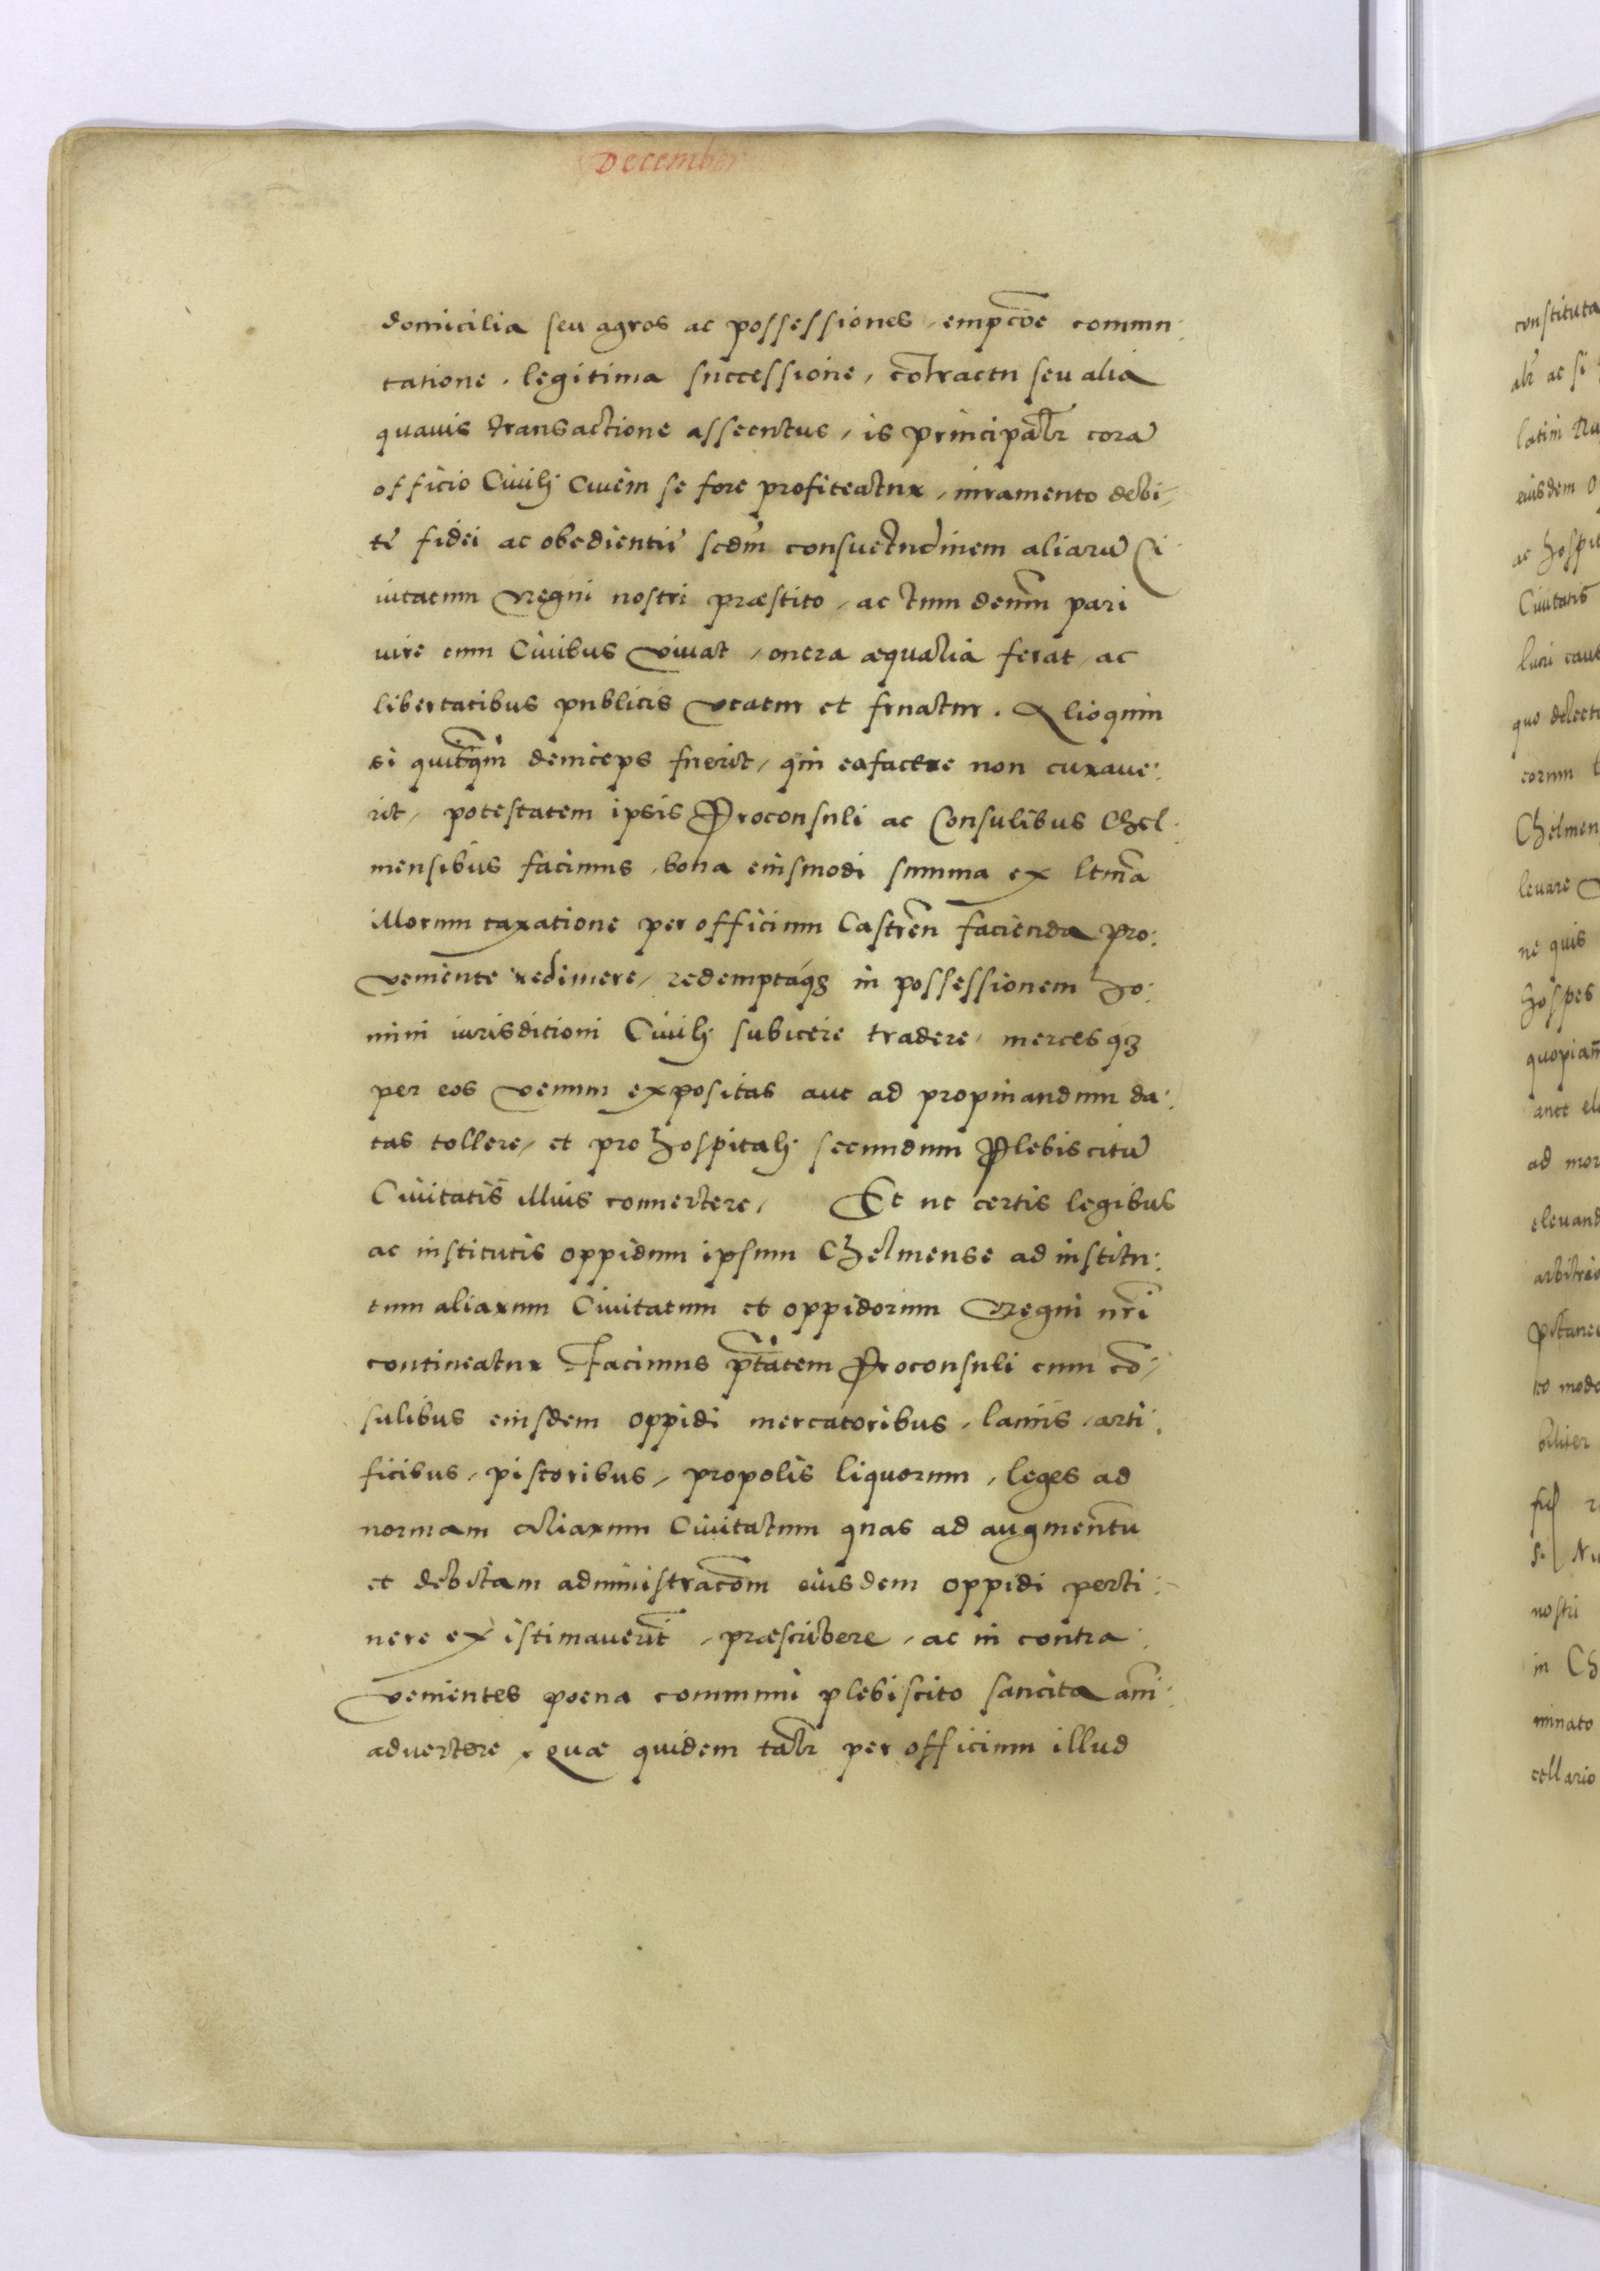 December
domicilia seu agros ac possessiones, empcōe commu:
tatione, legitima successione, cōtractu seu alia
quavis transactione assecutus, is principalr̄ corā
officio Civilj Civem se fore profiteatur, iuramento debi,
tę fidei ac obedientię scdm̄ consuetudinem aliarū Ci
vitatum Regni nostri præstito, ac tum demm̄ pari
iure cum Civibus vivat, onera æqualia ferat, ac
libertatibus publicis utatur et fruatur. Alioquin
si deinceps fuerit, qui ea facere non curave:
rit, potestatem ipsis Proconsuli ac Consulibus Chel:
mensibus facimus, bona eiusmodi summa ex ltm̄a
illorum taxatione per officium Castren̄ facienda pro:
veniente redimere, redemptaq3 in possessionem ho:
mini iurisditioni Civilj subicere tradere, mercesq3
per eos venum expositas aut ad propinandum da:
tas tollere, et pro hospitalj secundum Plebiscitū
Civitatis illius convertere, Et ut certis legibus
ac institutis oppidum ipsum Chelmense ad institu:
tum aliarum Civitatum et oppidorum Regni nr̄i
contineatur Facimus ptātem Proconsuli cum cō,
sulibus eiusdem oppidi mercatoribus, laniis, arti:
ficibus, pistoribus, propolis liquorum, leges ad
normam aliarum Civitatum quas ad augmentū
et debitam administracōm eiusdem oppidi perti:
nere existimaverīt, præscribere, ac in contra:
venientes poena communi plebiscito sancita ani:
advertere, Quæ quidem talr̄ per officium illud
constituta
alr̄ ac si
eiusdem
ac hospit
Civitatis
quo
eorum
Chelmen
levare
ne quis
hospes
quopiam
ad mor
elevand
nostri
in Ch
minato
cellario